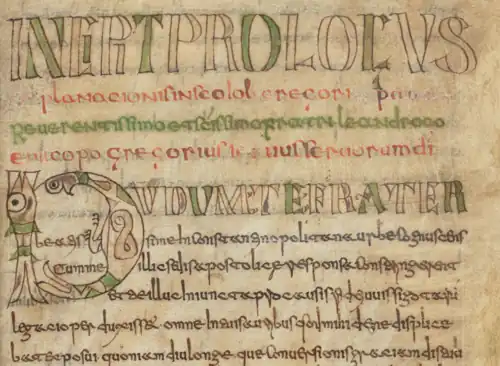 INCIPIT PROLOGUS
planacionis in scolob gregorii pa
reverentissimo et scissimo fratri leandro co
episcopo gregorius servus servorum di
DUDUM TE FRATER
beatissime In constantinopolitana urbe cognuscens
cum me illic sedis apostolice responsa constringerent
et te illuc iniuncta pro causis fidei vuisigotharu
legacio perduxisset omne In auribus quod mihi de me displice
bat exposui quoniam diu longe que conversionis graciam distu